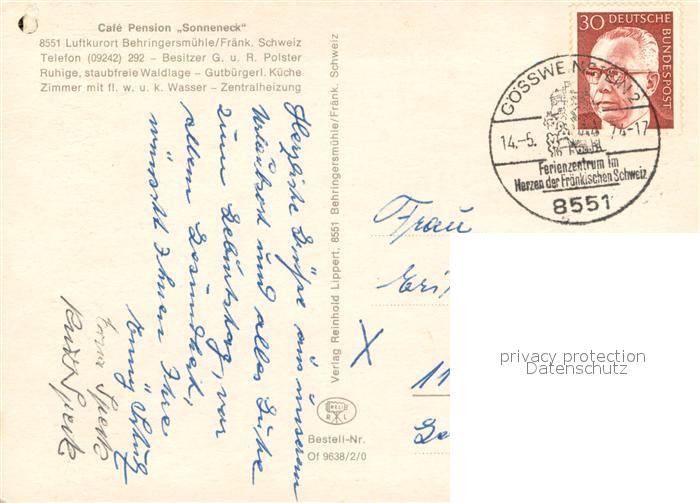 Café Pension „Sonneneck"
8551 Luftkurort Behringersmühle/Fränk. Schweiz
Telefon (09242) 292 – Besitzer G. u. R. Polster
Ruhige, staubfreie Waldlage – Gutbürgerl. Küche
Zimmer mit fl. w. u. k. Wasser – Zentralheizung
Herzliche Grüße aus unserem
Urlaubsort und alles Gute
zum Geburtstag, vor
allem Gesundheit,
wünscht Ihnen Ihre
Verlag Reinhold Lippert, 8551 Behringersmühle/Fränk. Schweiz
RELI
R L
Bestell-Nr.
Of 9638/2/0
30 DEUTSCHE
BUNDESPOST
GÖSSWEINSTEIN 2
14.-5. 74-17
Ferienzentrum im
Herzen der Fränkischen Schweiz
8551
Frau
X
11
privacy protection
Datenschutz